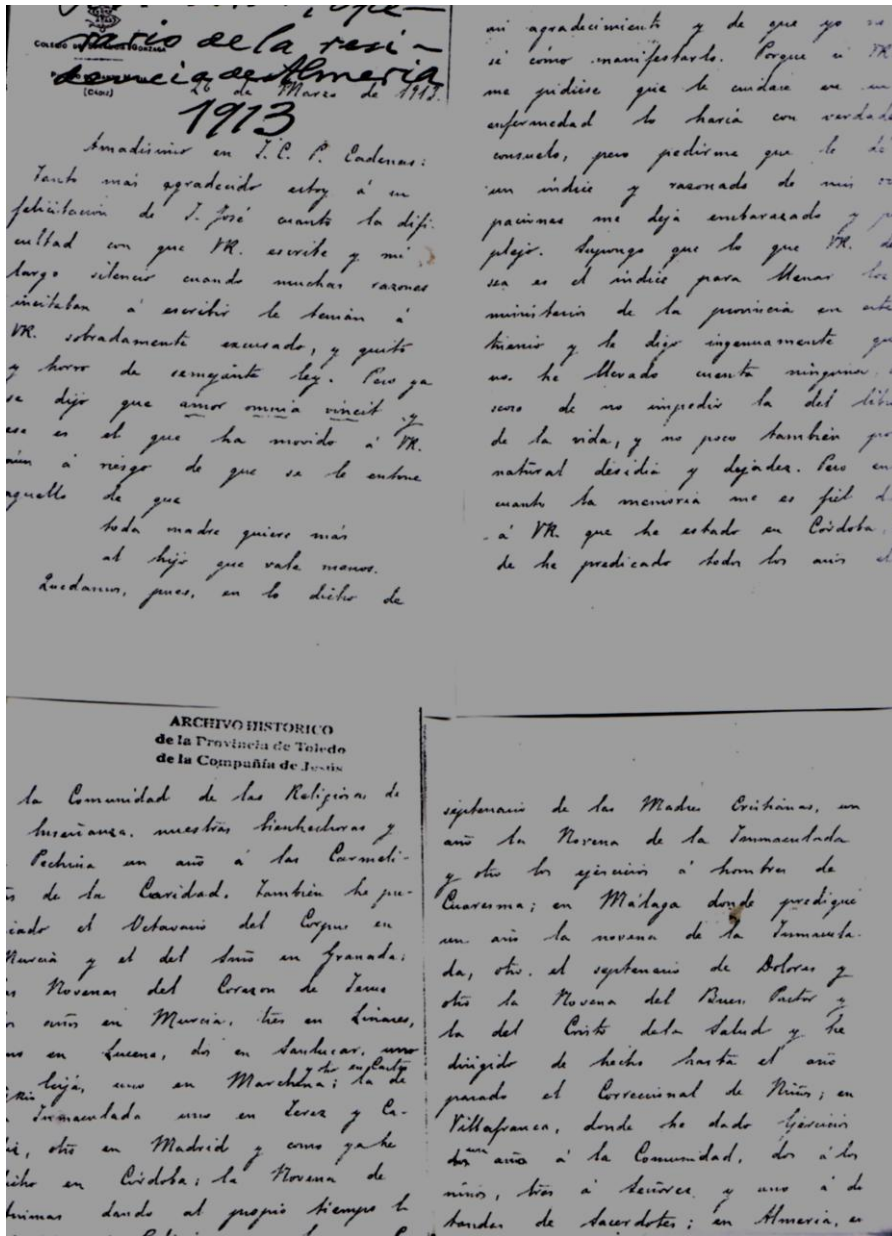 rario de la resi-
dencia de Almeria
COLEGIO DE GONZAGA
(CADIZ)
26 de Marzo de 1913.
1913
Amadisimo en J.C. P. Cadenas:
Tanto más agradecido estoy á su
felicitación de S. José cuanto la difi-
cultad con que VR. escribe y mi
largo silencio cuando muchas razones
incitaban á escribir le tenian á
VR. sobradamente excusado, y quito
y horro de semejante ley. Pero ya
se dijo que amor omnia vincit y
ese es el que ha movido á VR.
aún á riesgo de que se le entone
aquello de que
toda madre quiere más
al hijo que vale menos.
Quedamos, pues, en lo dicho de
mi agradecimiento y de que yo no
sé cómo manifestarlo. Porque si VR.
me pidiese que le cuidase en un
enfermedad lo haria con verdade
consuelo, pero pedirme que le dé
un indice y razonado de mis ocu
paciones me deja embarazado y per
plejo. Supongo que lo que VR. de
sea es el indice para llenar los
ministerios de la provincia en este
trienio y le digo ingenuamente que
no he llevado cuenta ninguna,
seoso de no impedir la del libro
de la vida, y no poco también por
natural desidia y dejadez. Pero en
cuanto la memoria me es fiel d
á VR. que he estado en Córdoba,
de he predicado todos los años el
ARCHIVO HISTORICO
de la Provincia de Toledo
de la Compañía de Jesús
la Comunidad de las Religiosas de
Enseñanza, nuestras bienhechoras y
Pechina un año á las Carmeli-
as de la Caridad. También he pre-
dicado el Octavario del Corpus en
Murcia y el del Niño en Granada;
as Novenas del Corazon de Jesus
os años en Murcia, tres en Linares,
uno en Lucena, dos en Sanlucar, uno
y otro en Castro
Rio
Ecija, uno en Marchena; la de
Inmaculada uno en Jerez y Ca-
diz, otro en Madrid y como ya he
dicho en Córdoba; la Novena de
Animas dando al propio tiempo l
septenario de las Madres Cristianas, un
año la Novena de la Inmaculada
y otro los ejercicios á hombres de
Cuaresma; en Málaga donde prediqué
un año la novena de la Inmacula-
da, otro el septenario de Dolores y
otro la Novena del Buen Pastor y
la del Cristo de la Salud y he
dirigido de hecho hasta el año
pasado el Correccional de Niños; en
Villafranca, donde he dado Ejercicios
un año á la Comunidad, dos á los
niños, tres á Señores y uno á de
tandas de Sacerdotes; en Almeria, en